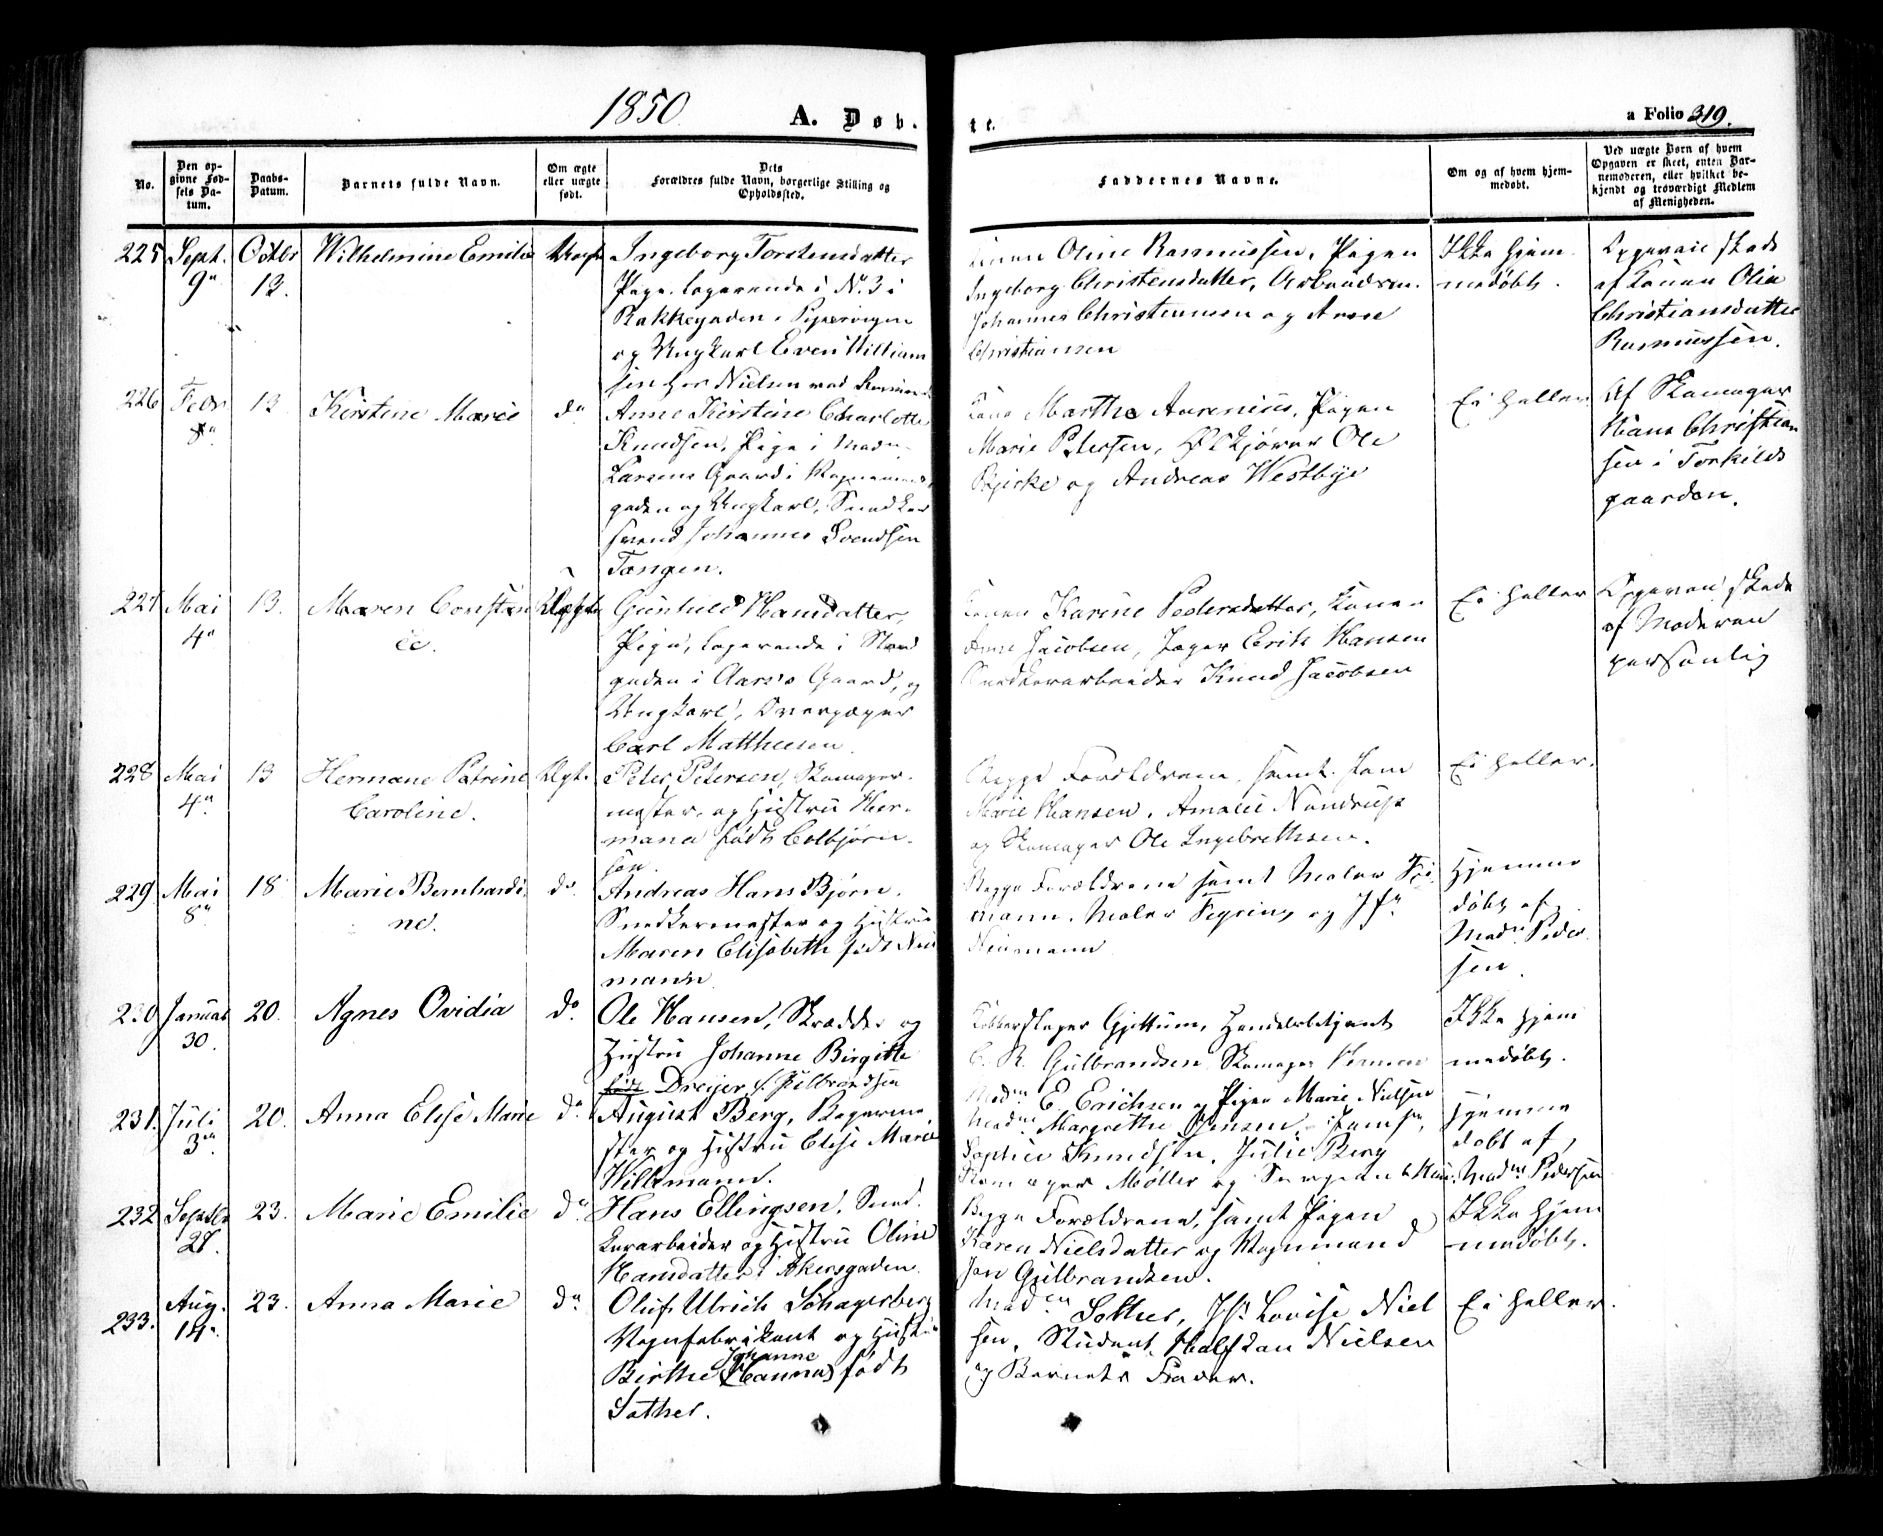 1850
A. Døb-
te.
a Folio 319.
No.
Den op-
givne Fød-
sels Da-
tum.
Daabs-
Datum.
Barnets fulde Navn.
Om ægte
eller uægte
født.
Dets
Forældres fulde Navn, borgerlige Stilling og
Opholdssted.
Faddernes Navne.
Om og af hvem hjem-
medøbt.
Ved uægte Børn af hvem
Opgaven er skeet, enten Bar-
nemoderen, eller hvilket be-
kjendt og troværdigt Medlem
af Menigheden.
225 Sept. 9 Octbr 13. Wilhelmine Emilie Uægt
Ingeborg Torstensdatter
Pige, logerende i No. 3 i
Bakkegaden i Pipervigen
og Ungkarl Even William
sen hos Nielsen ved
Oline Rasmussen, Pigen
Ingeborg Christensdatter,
Johannes Christiansen og Arne
Christiansen
Ikke hjem
medøbt.
Opgaven skede
af Konen Olia
Christiansdatter
Rasmussen.
226 Febr 8 13 Kirstine Marie do
Anne Kirstine Charlotte
Knudsen, Pige i Madm
Larsens Gaard i Vognmands
gaden og Ungkarl, Snedker
svend Johannes Svendsen
Tangen.
Kone Marthe Aurenius, Pigen
Marie Petersen, Ole
Bjerke og Andreas Westbye
Ei heller
Af Skomager
Hans Christian
sen i Torkilds
gaarden.
227 Mai 4 13. Maren Constan
ce. Uægte
Gunhild Hansdatter,
Pige, logerende i Stor
gaden i Aars's Gaard, og
Ungkarl,
Carl Mathiesen
Konen Karine Pedersdatter, Konen
Anne Jacobsen, Jæger Erik Hansen
Snedkerarbeider Knud Jacobsen
Ei heller
Opgaven skede
af Moderen
personlig
228 Mai 4 13 Hermane Petrine
Caroline. Ægt.
Peter Petersen, Skomager-
mester, og Hustru Her-
mana født Colbjørn-
sen.
Begge Forældrene, samt Jomf
Marie Hansen, Amalie Nandrup
og Skomager Ole Ingebrethsen.
Ei heller.
229 Mai 8 18 Marie Bernhardi-
ne. do
Andreas Hans Bjørn,
Snedkermester og Hustru
Maren Elisabeth født Neu
mann
Begge Forældrene samt Maler
mann, Maler og Jfr
Neumann
Hjemme
døbt af
Madm Peder
sen.
230 Januar 30. 20. Agnes Ovidia do.
Ole Hansen, Skrædder og
Hustru Johanne Birgitte
født Dreyer f. Gulbrandsen
Kobberslager Gjettum, Handelsbetjent
C. R. Gulbrandsen Skomager
Madm E. Erichsen og Pigen Marie Nielsen
Ikke hjem
medøbt.
231. Juli 3 20. Anna Elise Marie do
August Berg, Bogerme
ster og Hustru Elise Marie
Willemann.
Madme Margrethe Jensen, Jomfr,
Sophie Knudsen, Julie Berg
Skomager Møller og
Hjemme
døbt af
Madm Pedersen
232 Septbr 27. 23. Marie Emilie do
Hans Ellingsen, Sned-
kerarbeider og Hustru Oline
Hansdatter i Akersgaden.
Begge Forældrene, samt Pigen
Karen Nielsdatter og Vognmand
Jon Gulbrandsen.
Ikke hjem
medøbt.
233. Aug. 14. 23. Anna Marie do
Oluf Ulrich Schagerberg
Vognfabrikant og Hustru
Johanne
Birthe (Hanna) født
Sother.
Madm Sother, Jfr Lovise Niel
sen, Student Halfdan Nielsen
og Barnets Fader.
Ei heller.